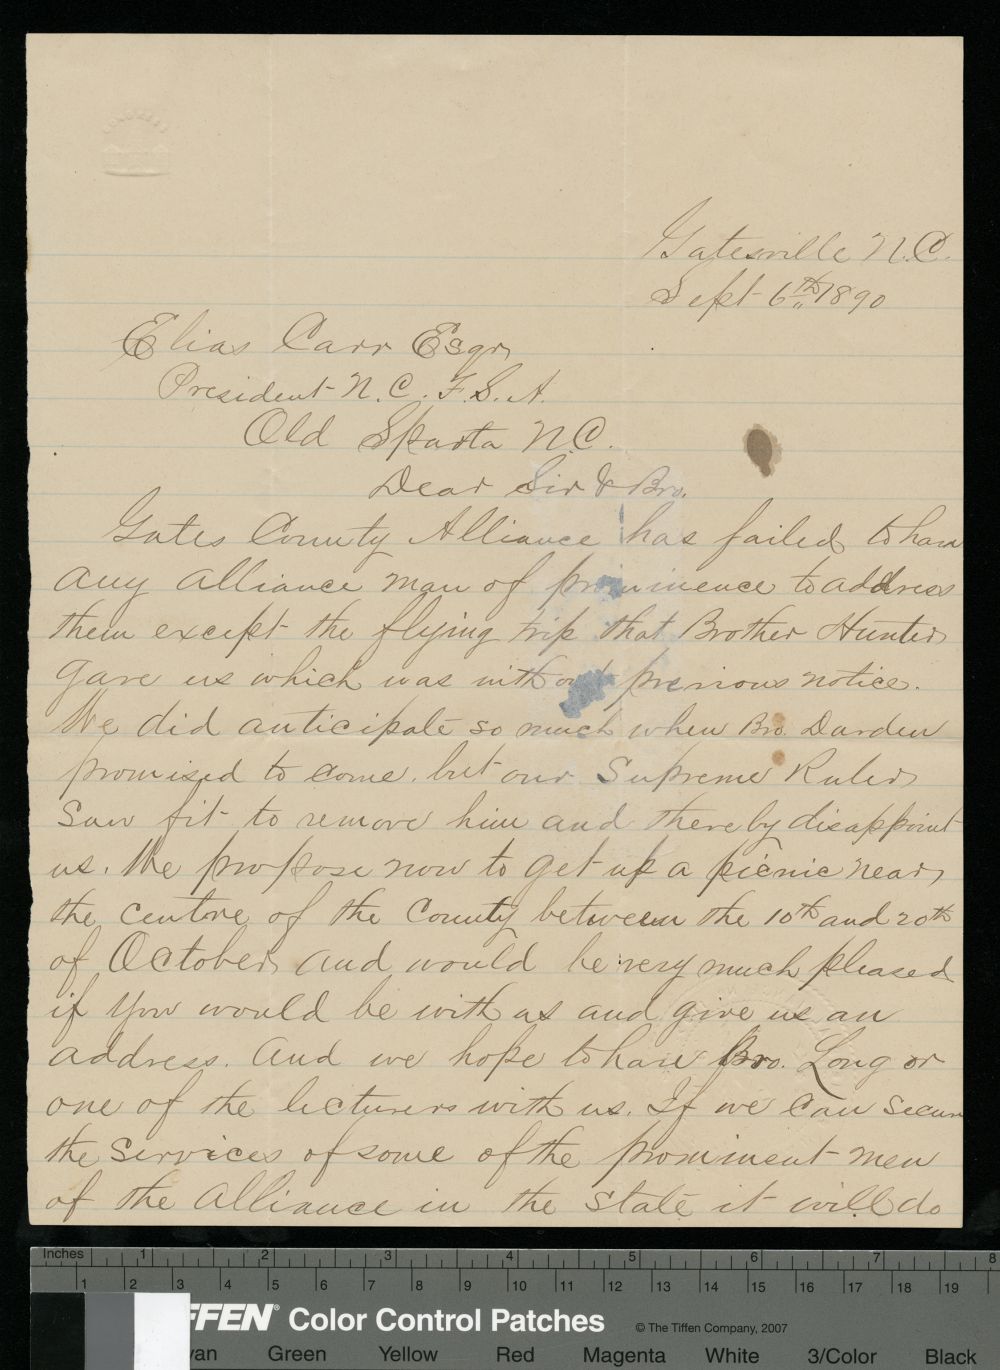 Gatesville N.C.
Sept 6th 1890
Elias Carr Esqr
President N.C. F.S.A.
Old Sparta N.C.
Dear Sir & Bro.
Gates County Alliance has failed to have
any alliance man of prominence to address
them except the flying trip that Brother Hunter
gave us which was without previous notice.
We did anticipate so much when Bro. Darden
promised to come, but our Supreme Ruler
saw fit to remove him and thereby disappoint
us. We propose now to get up a picnic near
the centre of the County between the 10th and 20th
of October and would be very much pleased
if you would be with us and give us an
address. And we hope to have Bro. Long or
one of the lecturers with us. If we can secure
the services of some of the prominent men
of the Alliance in the State it will do
Inches 1 2 3 4 5 6 7 8
1 2 3 4 5 6 7 8 9 10 11 12 13 14 15 16 17 18 19
FFEN® Color Control Patches © The Tiffen Company, 2007
yan Green Yellow Red Magenta White 3/Color Black